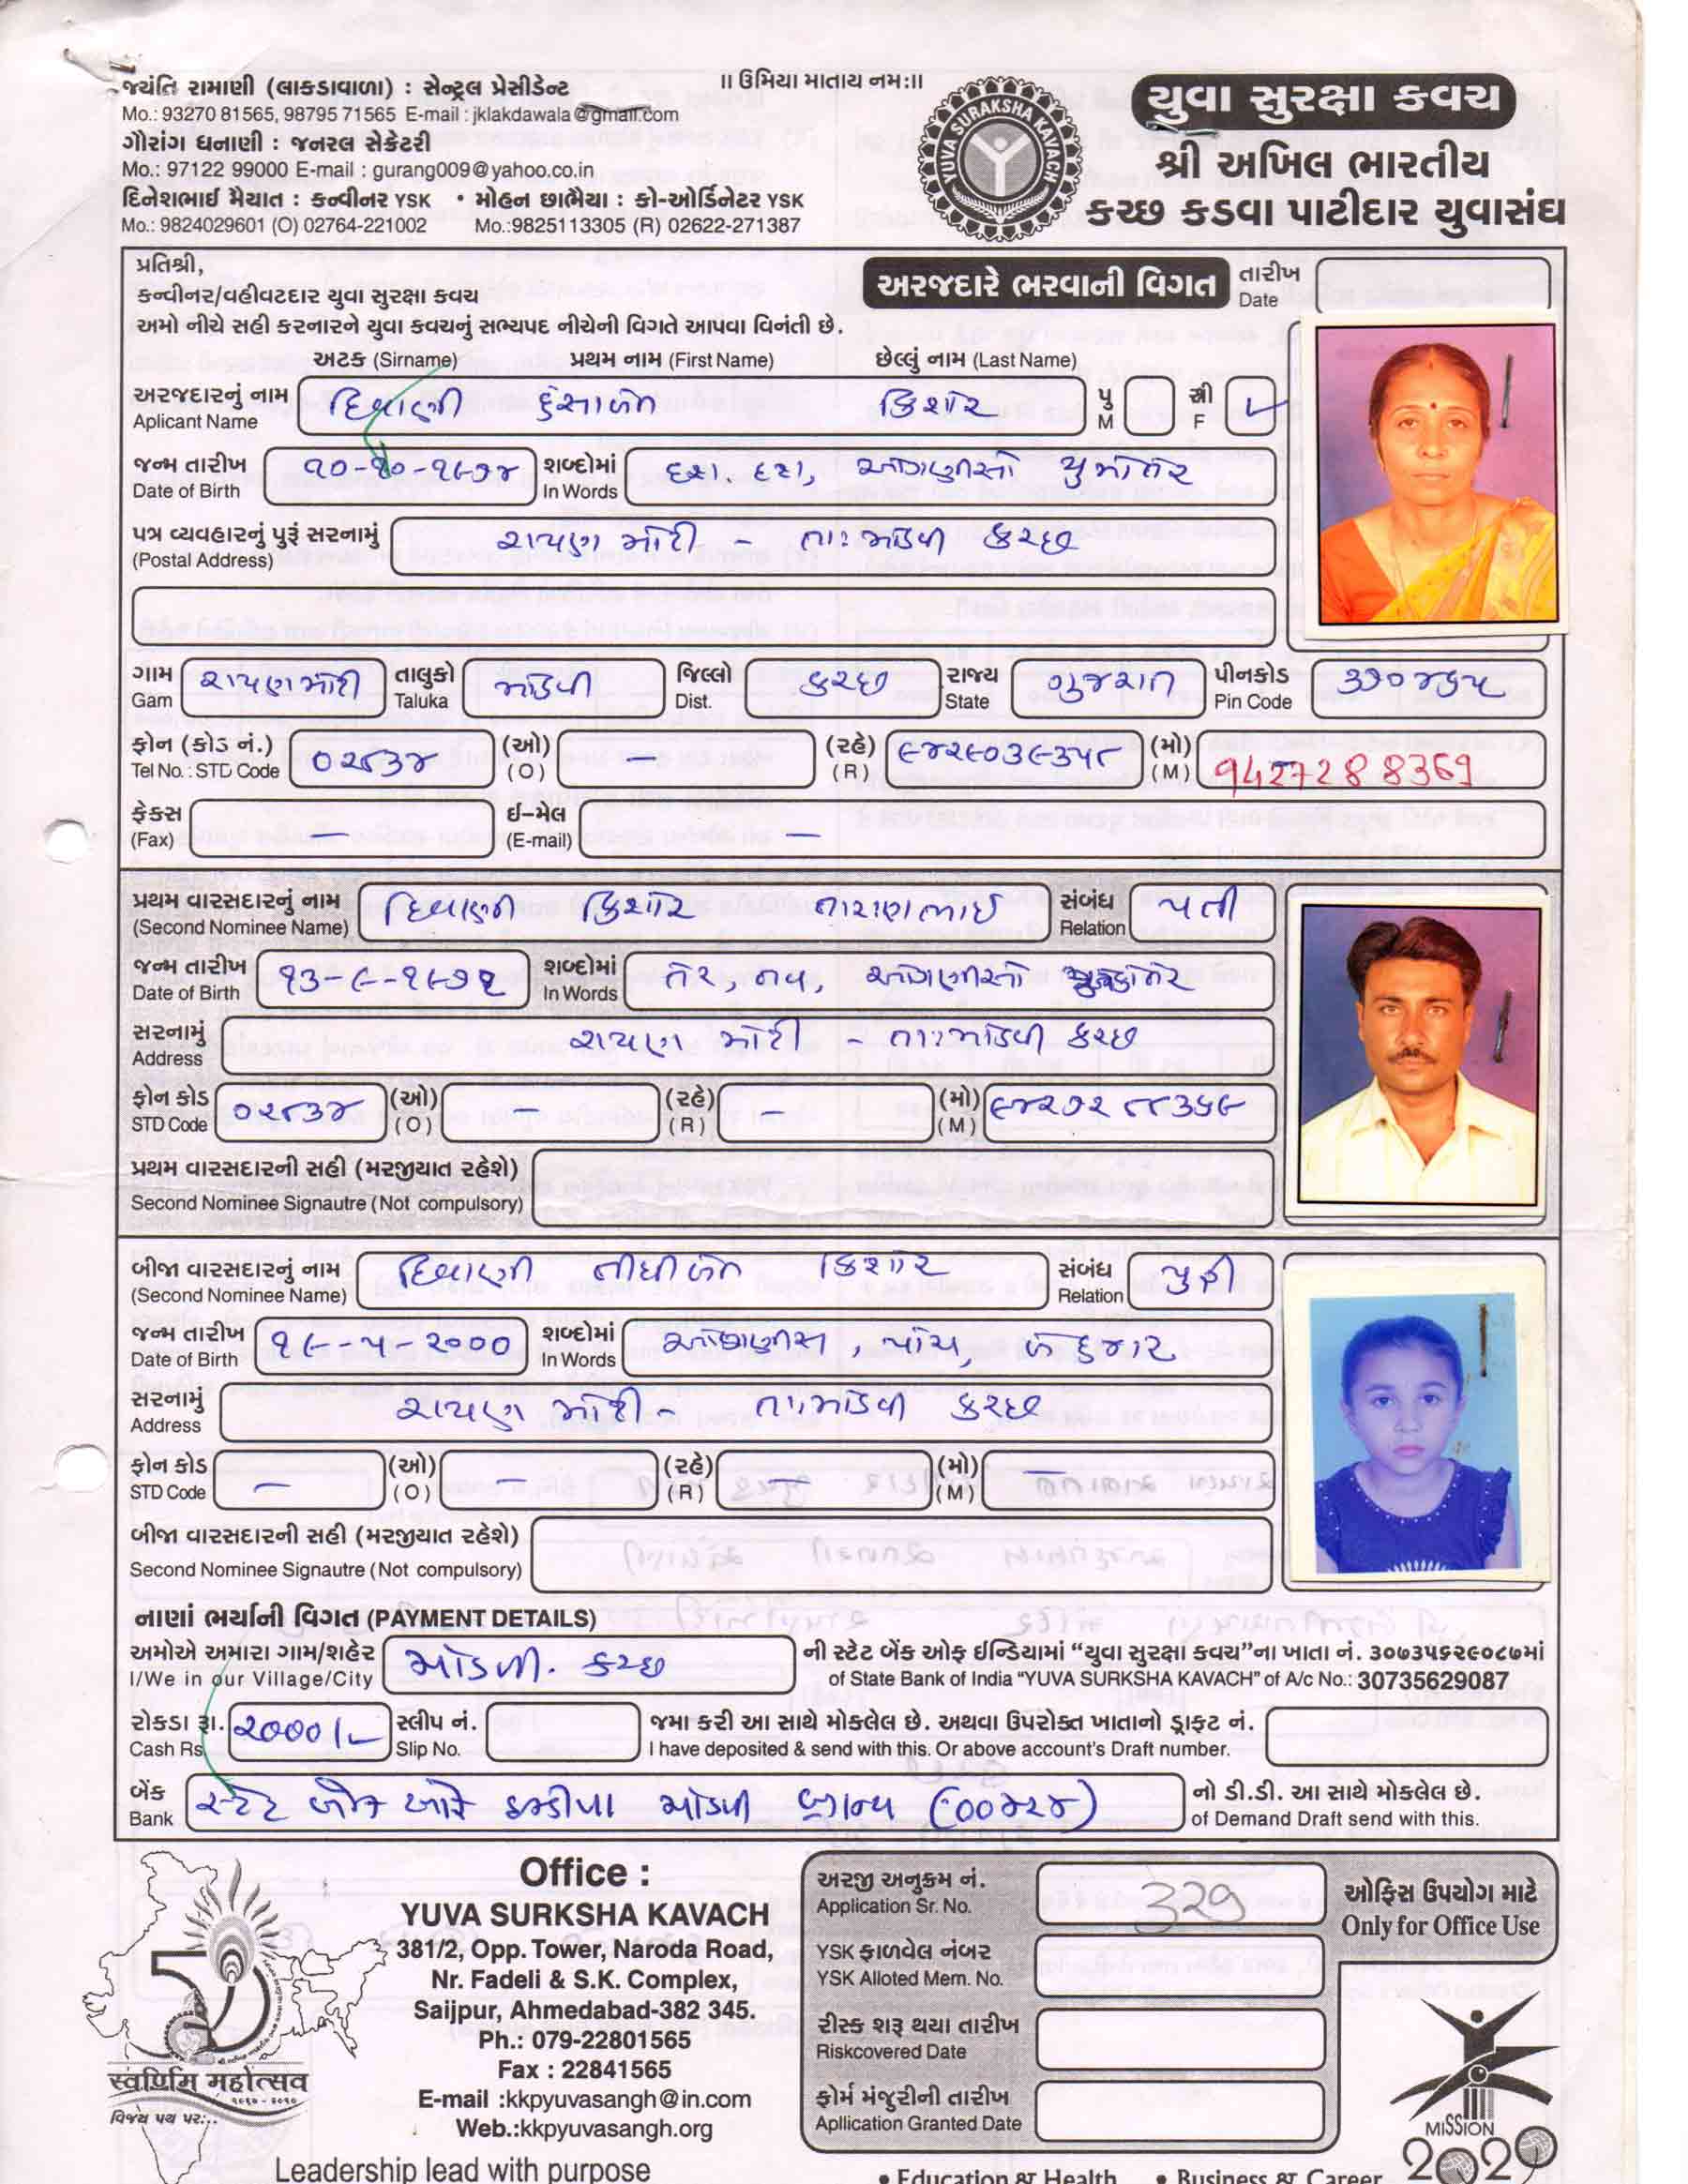 જયંતિ રામાણી (લાકડાવાળા) : સેન્ટ્રલ પ્રેસીડેન્ટ
Mo.: 93270 81565, 98795 71565 E-mail : jklakdawala@gmail.com
ગૌરાંગ ધનાણી : જનરલ સેક્રેટરી
Mo.: 97122 99000 E-mail : gurang009@yahoo.co.in
દિનેશભાઈ મૈયાત : કન્વીનર YSK • મોહન છાભૈયા : કો-ઓર્ડિનેટર YSK
Mo.: 9824029601 (O) 02764-221002 Mo.:9825113305 (R) 02622-271387
॥ ઉમિયા માતાય નમઃ॥
YUVA SURAKSHA KAVACH
યુવા સુરક્ષા કવચ
શ્રી અખિલ ભારતીય
કચ્છ કડવા પાટીદાર યુવાસંઘ
પ્રતિશ્રી,
કન્વીનર/વહીવટદાર યુવા સુરક્ષા કવચ
અમો નીચે સહી કરનારને યુવા કવચનું સભ્યપદ નીચેની વિગતે આપવા વિનંતી છે.
અરજદારે ભરવાની વિગત તારીખ Date
અટક (Sirname) પ્રથમ નામ (First Name) છેલ્લું નામ (Last Name)
અરજદારનું નામ Aplicant Name દિવાણી હંસાબેન કિશોર પુ M સ્ત્રી F ✓
જન્મ તારીખ Date of Birth ૧૦-૧૦-૧૯૭૪ શબ્દોમાં In Words દશ, દશ, ઓગણીસો ચુમોતેર
પત્ર વ્યવહારનું પુરૂં સરનામું (Postal Address) રાયણ મોટી - તા: માંડવી કચ્છ
ગામ Gam રાયણ મોટી તાલુકો Taluka માંડવી જિલ્લો Dist. કચ્છ રાજ્ય State ગુજરાત પીનકોડ Pin Code ૩૭૦૪૬૫
ફોન (કોડ નં.) Tel No. : STD Code ૦૨૮૩૪ (ઓ) (O) — (રહે) (R) (મો) (M) 9427288369
ફેક્સ (Fax) — ઈ-મેલ (E-mail) —
પ્રથમ વારસદારનું નામ (Second Nominee Name) દિવાણી કિશોર નારાણભાઈ સંબંધ Relation પતી
જન્મ તારીખ Date of Birth શબ્દોમાં In Words તેર, નવ, ઓગણીસો
સરનામું Address રાયણ મોટી - તા: માંડવી કચ્છ
ફોન કોડ STD Code ૦૨૮૩૪ (ઓ) (O) — (રહે) (R) — (મો) (M) ૯૪૨૭૨૮૮૩૬૯
પ્રથમ વારસદારની સહી (મરજીયાત રહેશે)
Second Nominee Signautre (Not compulsory)
બીજા વારસદારનું નામ (Second Nominee Name) દિવાણી નીધીબેન કિશોર સંબંધ Relation પુત્રી
જન્મ તારીખ Date of Birth ૧૯-૫-૨૦૦૦ શબ્દોમાં In Words ઓગણીસ, પાંચ, બે હજાર
સરનામું Address રાયણ મોટી - તા: માંડવી કચ્છ
ફોન કોડ STD Code — (ઓ) (O) — (રહે) (R) — (મો) (M) —
બીજા વારસદારની સહી (મરજીયાત રહેશે)
Second Nominee Signautre (Not compulsory)
નાણાં ભર્યાની વિગત (PAYMENT DETAILS)
અમોએ અમારા ગામ/શહેર માંડવી. કચ્છ ની સ્ટેટ બેંક ઓફ ઈન્ડિયામાં “યુવા સુરક્ષા કવચ”ના ખાતા નં. ૩૦૭૩૫૬૨૯૦૮૭માં
I/We in our Village/City of State Bank of India “YUVA SURKSHA KAVACH” of A/c No.: 30735629087
રોકડા રૂા. Cash Rs. ૨૦૦૦/- સ્લીપ નં. Slip No. જમા કરી આ સાથે મોકલેલ છે. અથવા ઉપરોક્ત ખાતાનો ડ્રાફટ નં.
I have deposited & send with this. Or above account's Draft number.
બેંક Bank સ્ટેટ બેંક ઓફ ઇન્ડીયા માંડવી બ્રાન્ચ (૦૦૪૨૪) નો ડી.ડી. આ સાથે મોકલેલ છે.
of Demand Draft send with this.
50
स्वर्णिम महोत्सव
૧૯૬૦ - ૨૦૧૦
વિજય પથ પર...
Office :
YUVA SURKSHA KAVACH
381/2, Opp. Tower, Naroda Road,
Nr. Fadeli & S.K. Complex,
Saijpur, Ahmedabad-382 345.
Ph.: 079-22801565
Fax : 22841565
E-mail :kkpyuvasangh@in.com
Web.:kkpyuvasangh.org
Leadership lead with purpose
અરજી અનુક્રમ નં. Application Sr. No. 329
YSK ફાળવેલ નંબર YSK Alloted Mem. No.
રીસ્ક શરૂ થયા તારીખ Riskcovered Date
ફોર્મ મંજુરીની તારીખ Apllication Granted Date
ઓફિસ ઉપયોગ માટે
Only for Office Use
MISSION
2020
• Education & Health • Business & Career